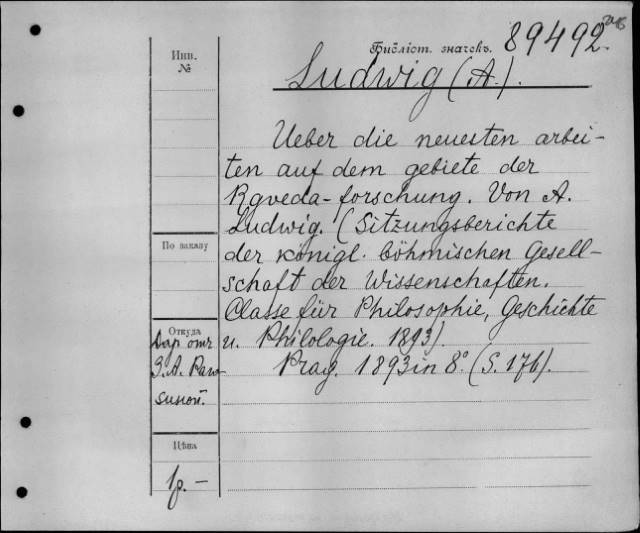 Библіот. значекъ. 89492
Ludwig (A.).
Инв.
№
Ueber die neuesten arbei-
ten auf dem gebiete der
Rgveda-forschung. Von A.
Ludwig. (Sitzungsberichte
der königl. böhmischen Gesell-
schaft der Wissenschaften.
Classe für Philosophie, Geschichte
u. Philologie. 1893).
Prag. 1893 in 8°. (S. 176).
По заказу
Откуда
Дар отъ
З. А.
Цѣна
1р. -